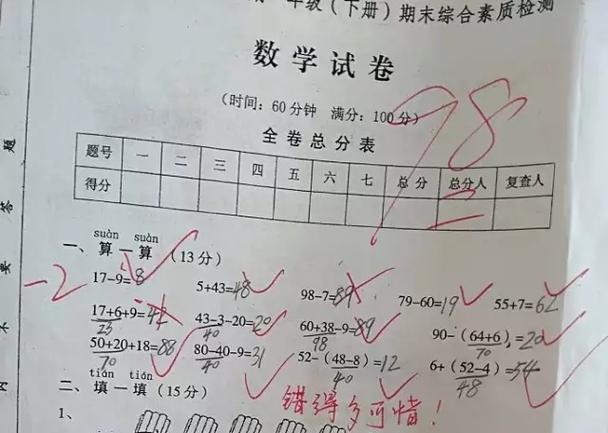 年级（下册）期末综合素质检测
数学试卷
（时间：60分钟 满分：100分）
98
全卷总分表
题号 一 二 三 四 五 六 七 总分 总分人 复查人
得分
题
答
要
不
内
suàn suàn
一、算一算（13分）
-2
17-9=8 5+43=48 98-7=89 79-60=19 55+7=62
17+6+9=42 43-3-20=20 60+38-9=89 90-（64+6）=20
23 40 98 70
50+20+18=88 80-40-9=31 52-（48-8）=12 6+（52-4）=54
70 40 40 48
tián tián
二、填一填（15分）
错得多可惜！
1、